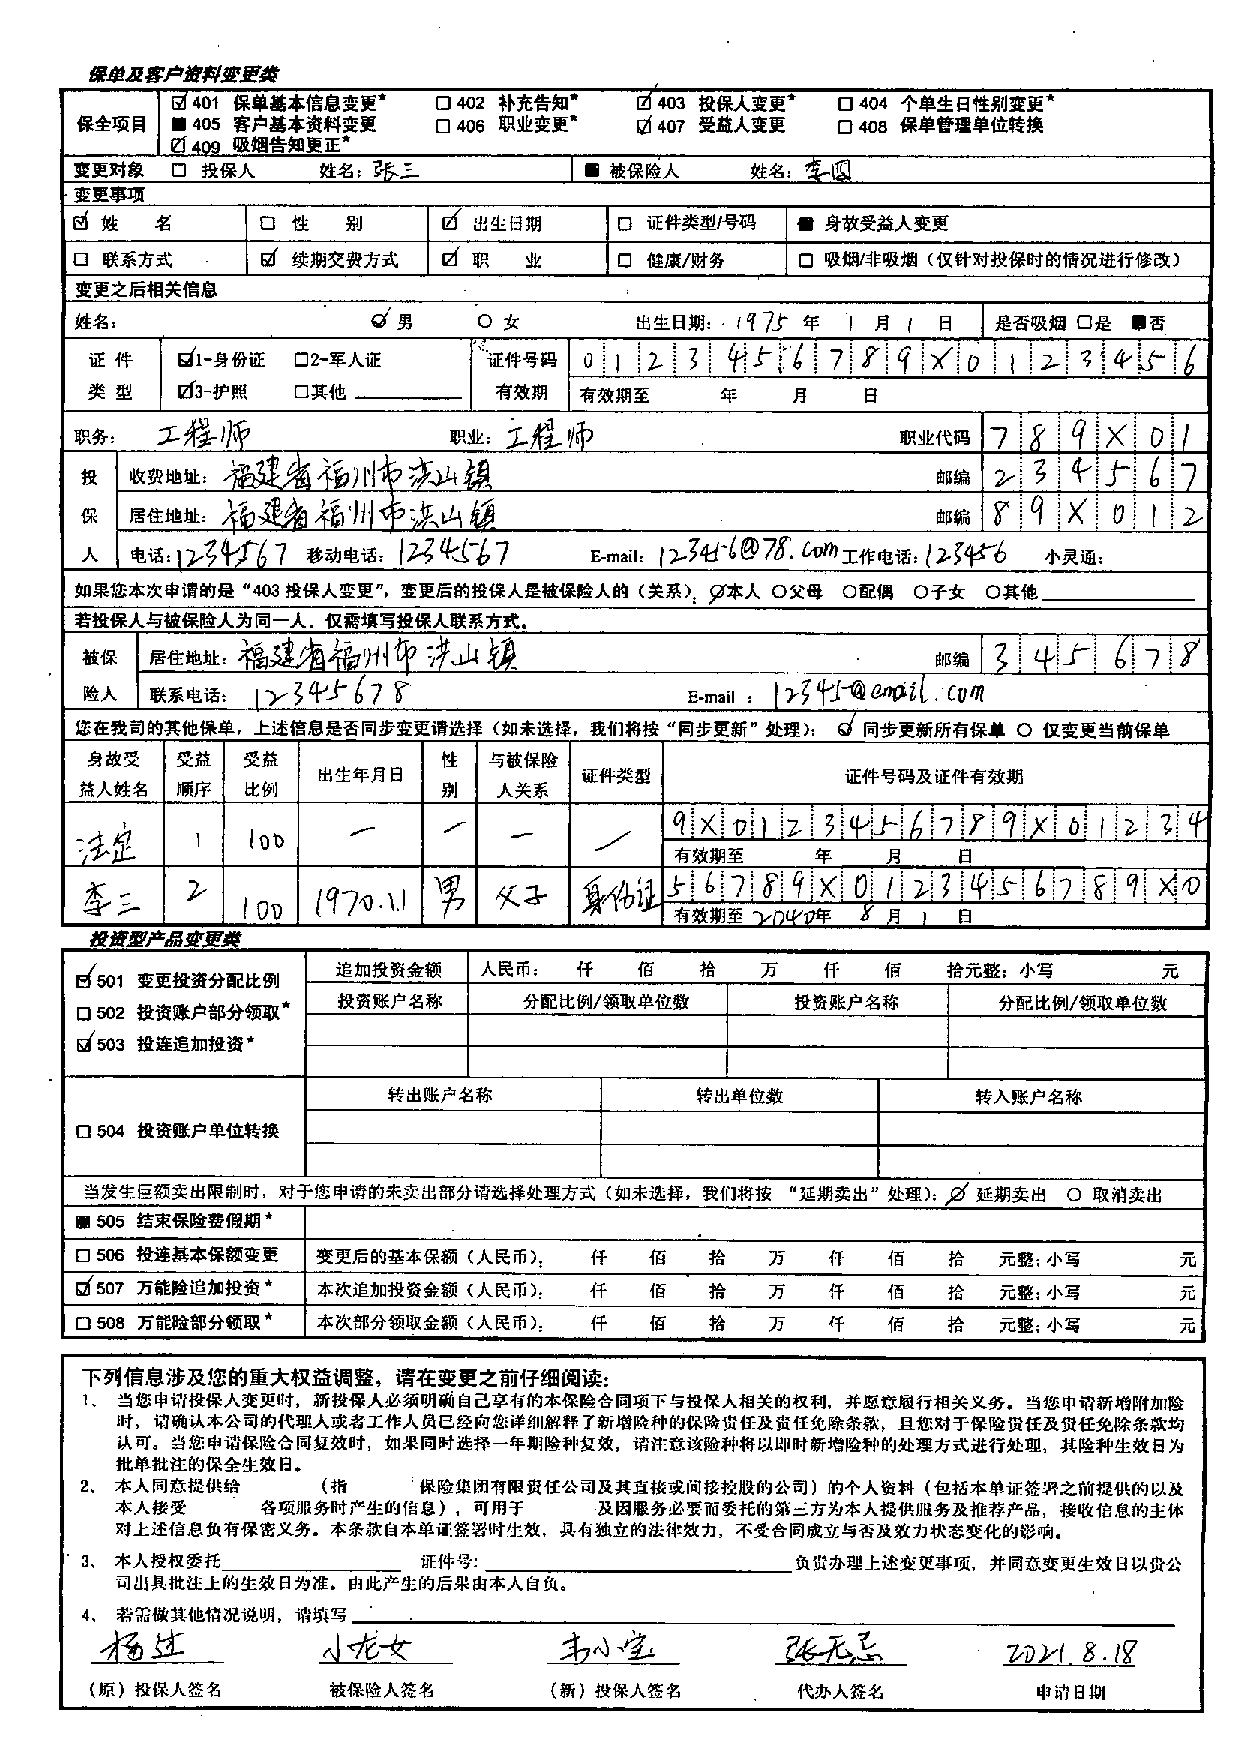 保单及客户资料变更类
保全项目
☑401 保单基本信息变更* □402 补充告知* ☑403 投保人变更* □404 个单生日性别变更*
■405 客户基本资料变更 □406 职业变更* ☑407 受益人变更 □408 保单管理单位转换
☑409 吸烟告知更正*
变更对象 □ 投保人 姓名：张三 ■ 被保险人 姓名：李四
变更事项
☑ 姓 名 □ 性 别 ☑ 出生日期 □ 证件类型/号码 ■ 身故受益人变更
□ 联系方式 ☑ 续期交费方式 ☑ 职 业 □ 健康/财务 □ 吸烟/非吸烟（仅针对投保时的情况进行修改）
变更之后相关信息
姓名： ☑男 ○女 出生日期：1975 年 1 月 1 日 是否吸烟 □是 ■否
证 件 ☑1-身份证 □2-军人证 证件号码 0123456789X0123456
类 型 ☑3-护照 □其他 有效期 有效期至 年 月 日
职务：工程师 职业：工程师 职业代码 789X01
投 收费地址：福建省福州市洪山镇 邮编 234567
保 居住地址：福建省福州市洪山镇 邮编 89X012
人 电话：1234567 移动电话：1234567 E-mail：123456@78.com 工作电话：123456 小灵通：
如果您本次申请的是“403 投保人变更”，变更后的投保人是被保险人的（关系）：☑本人 ○父母 ○配偶 ○子女 ○其他
若投保人与被保险人为同一人，仅需填写投保人联系方式。
被保 居住地址：福建省福州市洪山镇 邮编 345678
险人 联系电话：12345678 E-mail：12345@email.com
您在我司的其他保单，上述信息是否同步变更请选择（如未选择，我们将按“同步更新”处理）：☑ 同步更新所有保单 ○ 仅变更当前保单
身故受益人姓名 受益顺序 受益比例 出生年月日 性别 与被保险人关系 证件类型 证件号码及证件有效期
法定 1 100 — — — — 9X0123456789X01234
有效期至 年 月 日
李三 2 100 1970.1.1 男 父子 身份证 56789X0123456789X0
有效期至 2040年 8 月 1 日
投资型产品变更类
☑501 变更投资分配比例
□502 投资账户部分领取*
☑503 投连追加投资*
追加投资金额 人民币： 仟 佰 拾 万 仟 佰 拾元整；小写 元
投资账户名称 分配比例/领取单位数 投资账户名称 分配比例/领取单位数
□504 投资账户单位转换
转出账户名称 转出单位数 转入账户名称
当发生巨额卖出限制时，对于您申请的未卖出部分请选择处理方式（如未选择，我们将按 “延期卖出”处理）：☑ 延期卖出 ○ 取消卖出
■505 结束保险费假期*
□506 投连基本保额变更 变更后的基本保额（人民币）： 仟 佰 拾 万 仟 佰 拾 元整；小写 元
☑507 万能险追加投资* 本次追加投资金额（人民币）： 仟 佰 拾 万 仟 佰 拾 元整；小写 元
□508 万能险部分领取* 本次部分领取金额（人民币）： 仟 佰 拾 万 仟 佰 拾 元整；小写 元
下列信息涉及您的重大权益调整，请在变更之前仔细阅读：
1、 当您申请投保人变更时，新投保人必须明确自己享有的本保险合同项下与投保人相关的权利，并愿意履行相关义务。当您申请新增附加险
时，请确认本公司的代理人或者工作人员已经向您详细解释了新增险种的保险责任及责任免除条款，且您对于保险责任及责任免除条款均
认可。当您申请保险合同复效时，如果同时选择一年期险种复效，请注意该险种将以即时新增险种的处理方式进行处理，其险种生效日为
批单批注的保全生效日。
2、 本人同意提供给 （指 保险集团有限责任公司及其直接或间接控股的公司）的个人资料（包括本单证签署之前提供的以及
本人接受 各项服务时产生的信息），可用于 及因服务必要而委托的第三方为本人提供服务及推荐产品，接收信息的主体
对上述信息负有保密义务。本条款自本单证签署时生效，具有独立的法律效力，不受合同成立与否及效力状态变化的影响。
3、 本人授权委托 证件号： 负责办理上述变更事项，并同意变更生效日以贵公
司出具批注上的生效日为准。由此产生的后果由本人自负。
4、 若需做其他情况说明，请填写
杨过 小龙女 韦小宝 张无忌 2021.8.18
（原）投保人签名 被保险人签名 （新）投保人签名 代办人签名 申请日期